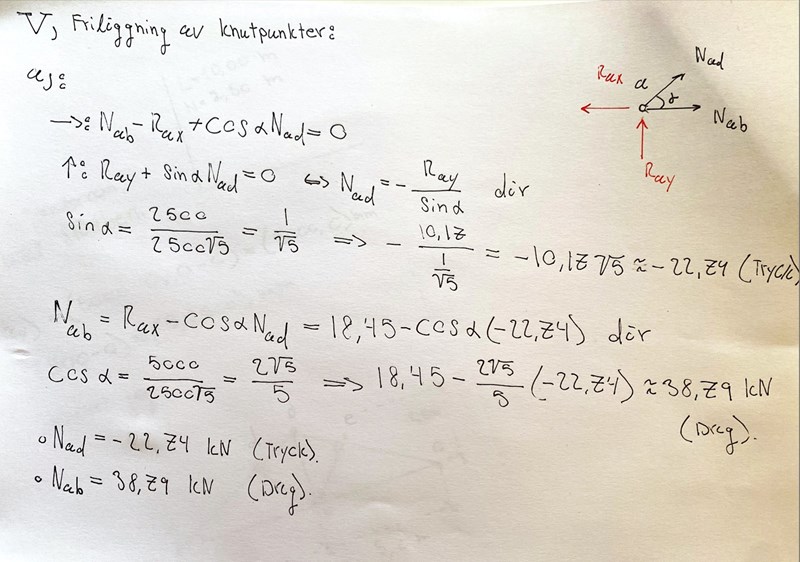 V) Friläggning av knutpunkter:
a):
→: Nab - Rax + cos α Nad = 0
↑: Ray + sin α Nad = 0 ⇔ Nad = - Ray / sin α där
sin α = 2500 / 2500√5 = 1 / √5 ⇒ - 10,17 / (1/√5) = -10,17√5 ≈ -22,74 (Tryck)
Nab = Rax - cos α Nad = 18,45 - cos α (-22,74) där
cos α = 5000 / 2500√5 = 2√5 / 5 ⇒ 18,45 - 2√5 / 5 (-22,74) ≈ 38,79 kN
(Drag).
∘ Nad = -22,74 kN (Tryck).
∘ Nab = 38,79 kN (Drag).
Nad
Rax a
α
Nab
Ray